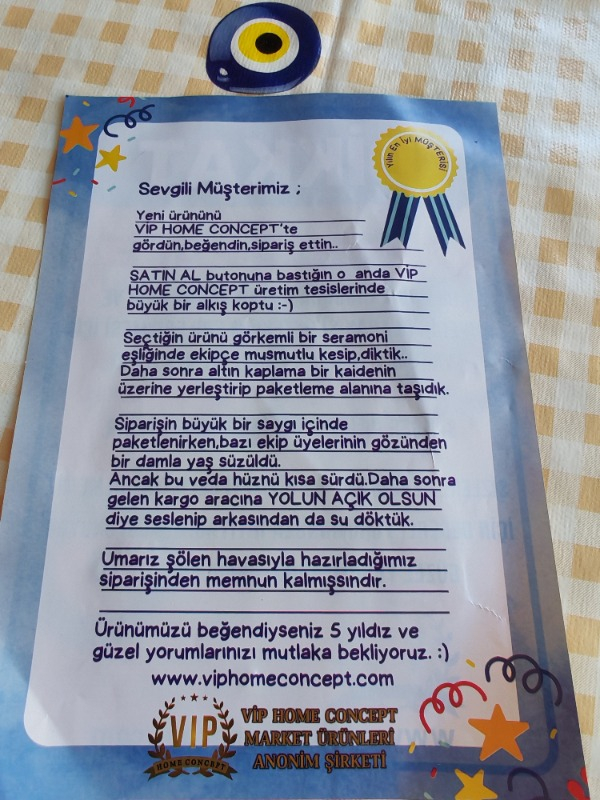 Yılın En İyi MÜŞTERİSİ
Sevgili Müşterimiz ;
Yeni ürününü
VİP HOME CONCEPT'te
gördün,beğendin,sipariş ettin..
SATIN AL butonuna bastığın o anda VİP
HOME CONCEPT üretim tesislerinde
büyük bir alkış koptu :-)
Seçtiğin ürünü görkemli bir seramoni
eşliğinde ekipçe musmutlu kesip,diktik..
Daha sonra altın kaplama bir kaidenin
üzerine yerleştirip paketleme alanına taşıdık.
Siparişin büyük bir saygı içinde
paketlenirken,bazı ekip üyelerinin gözünden
bir damla yaş süzüldü.
Ancak bu veda hüznü kısa sürdü.Daha sonra
gelen kargo aracına YOLUN AÇIK OLSUN
diye seslenip arkasından da su döktük.
Umarız şölen havasıyla hazırladığımız
siparişinden memnun kalmışsındır.
Ürünümüzü beğendiyseniz 5 yıldız ve
güzel yorumlarınızı mutlaka bekliyoruz. :)
www.viphomeconcept.com
VIP
HOME CONCEPT
VİP HOME CONCEPT
MARKET ÜRÜNLERİ
ANONİM ŞİRKETİ